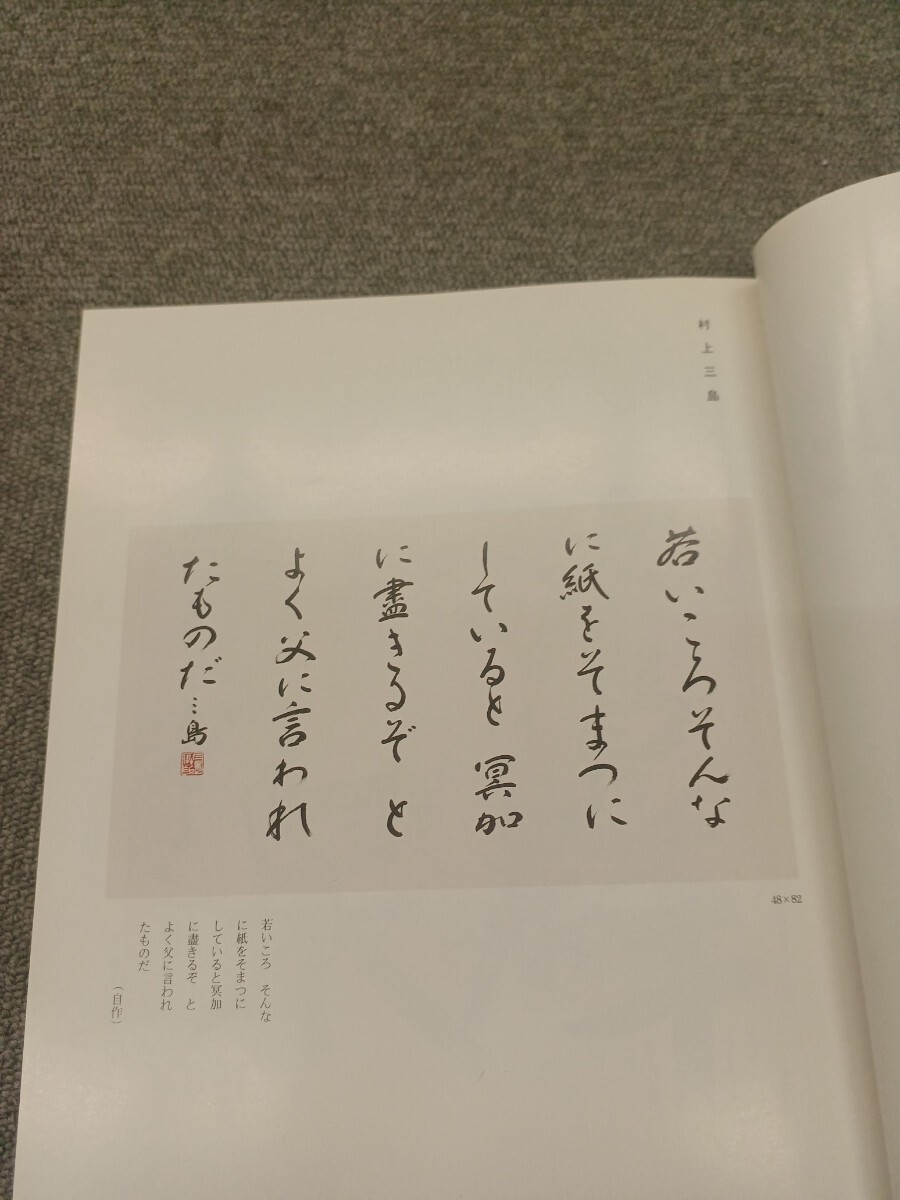 村上三島
若いころそんな
に紙をそまつに
していると冥加
に盡きるぞと
よく父に言われ
たものだ 三島
48×82
若いころ そんな
に紙をそまつに
していると冥加
に盡きるぞ と
よく父に言われ
たものだ
（自作）